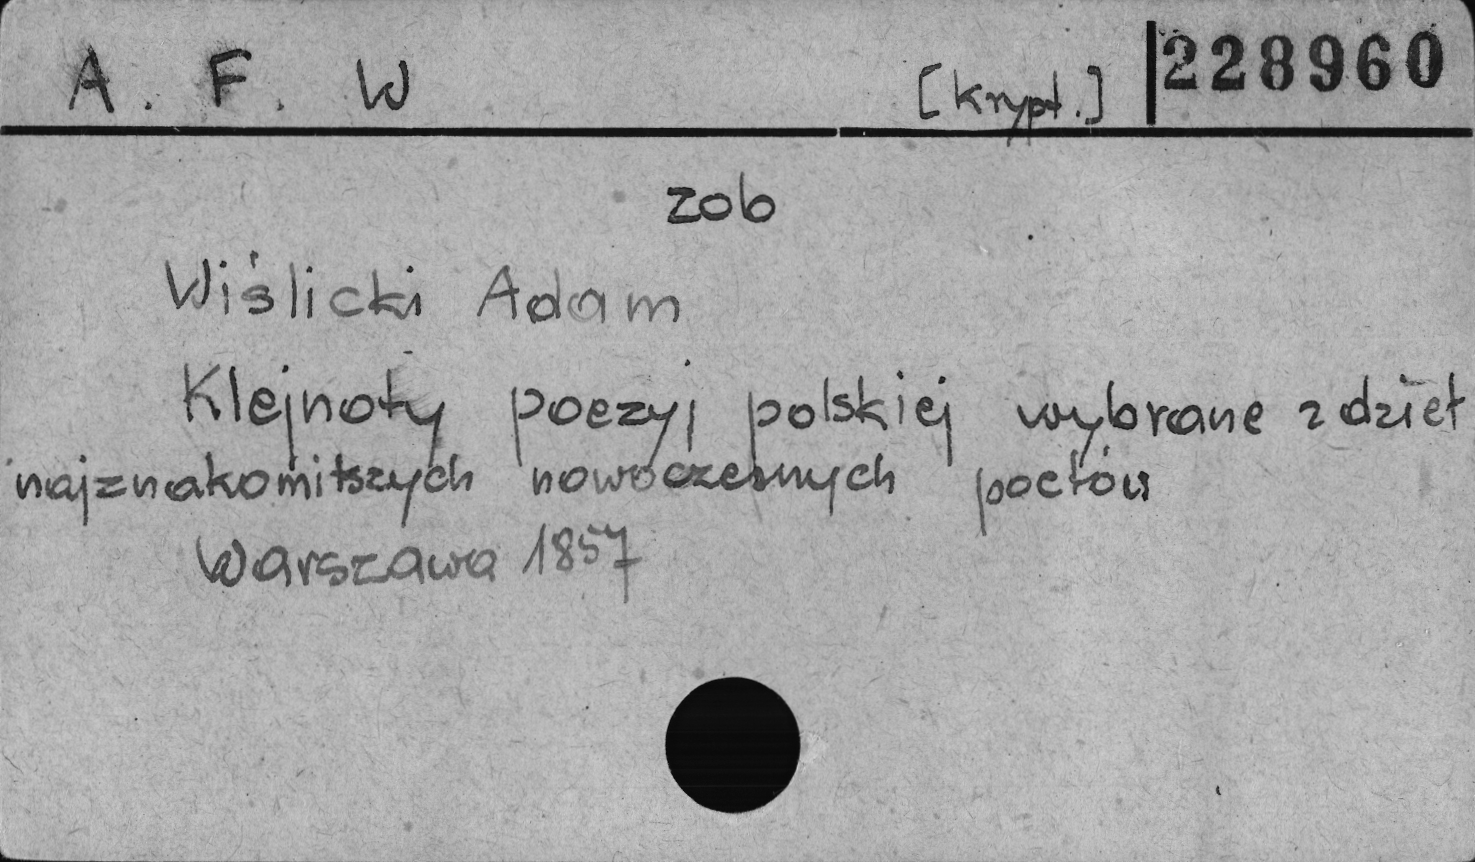 A. F. W [krypt.] 228960
zob
Wiślicki Adam
Klejnoty poezyj polskiej wybrane z dzieł
najznakomitszych nowoczesnych poetów
Warszawa 1857